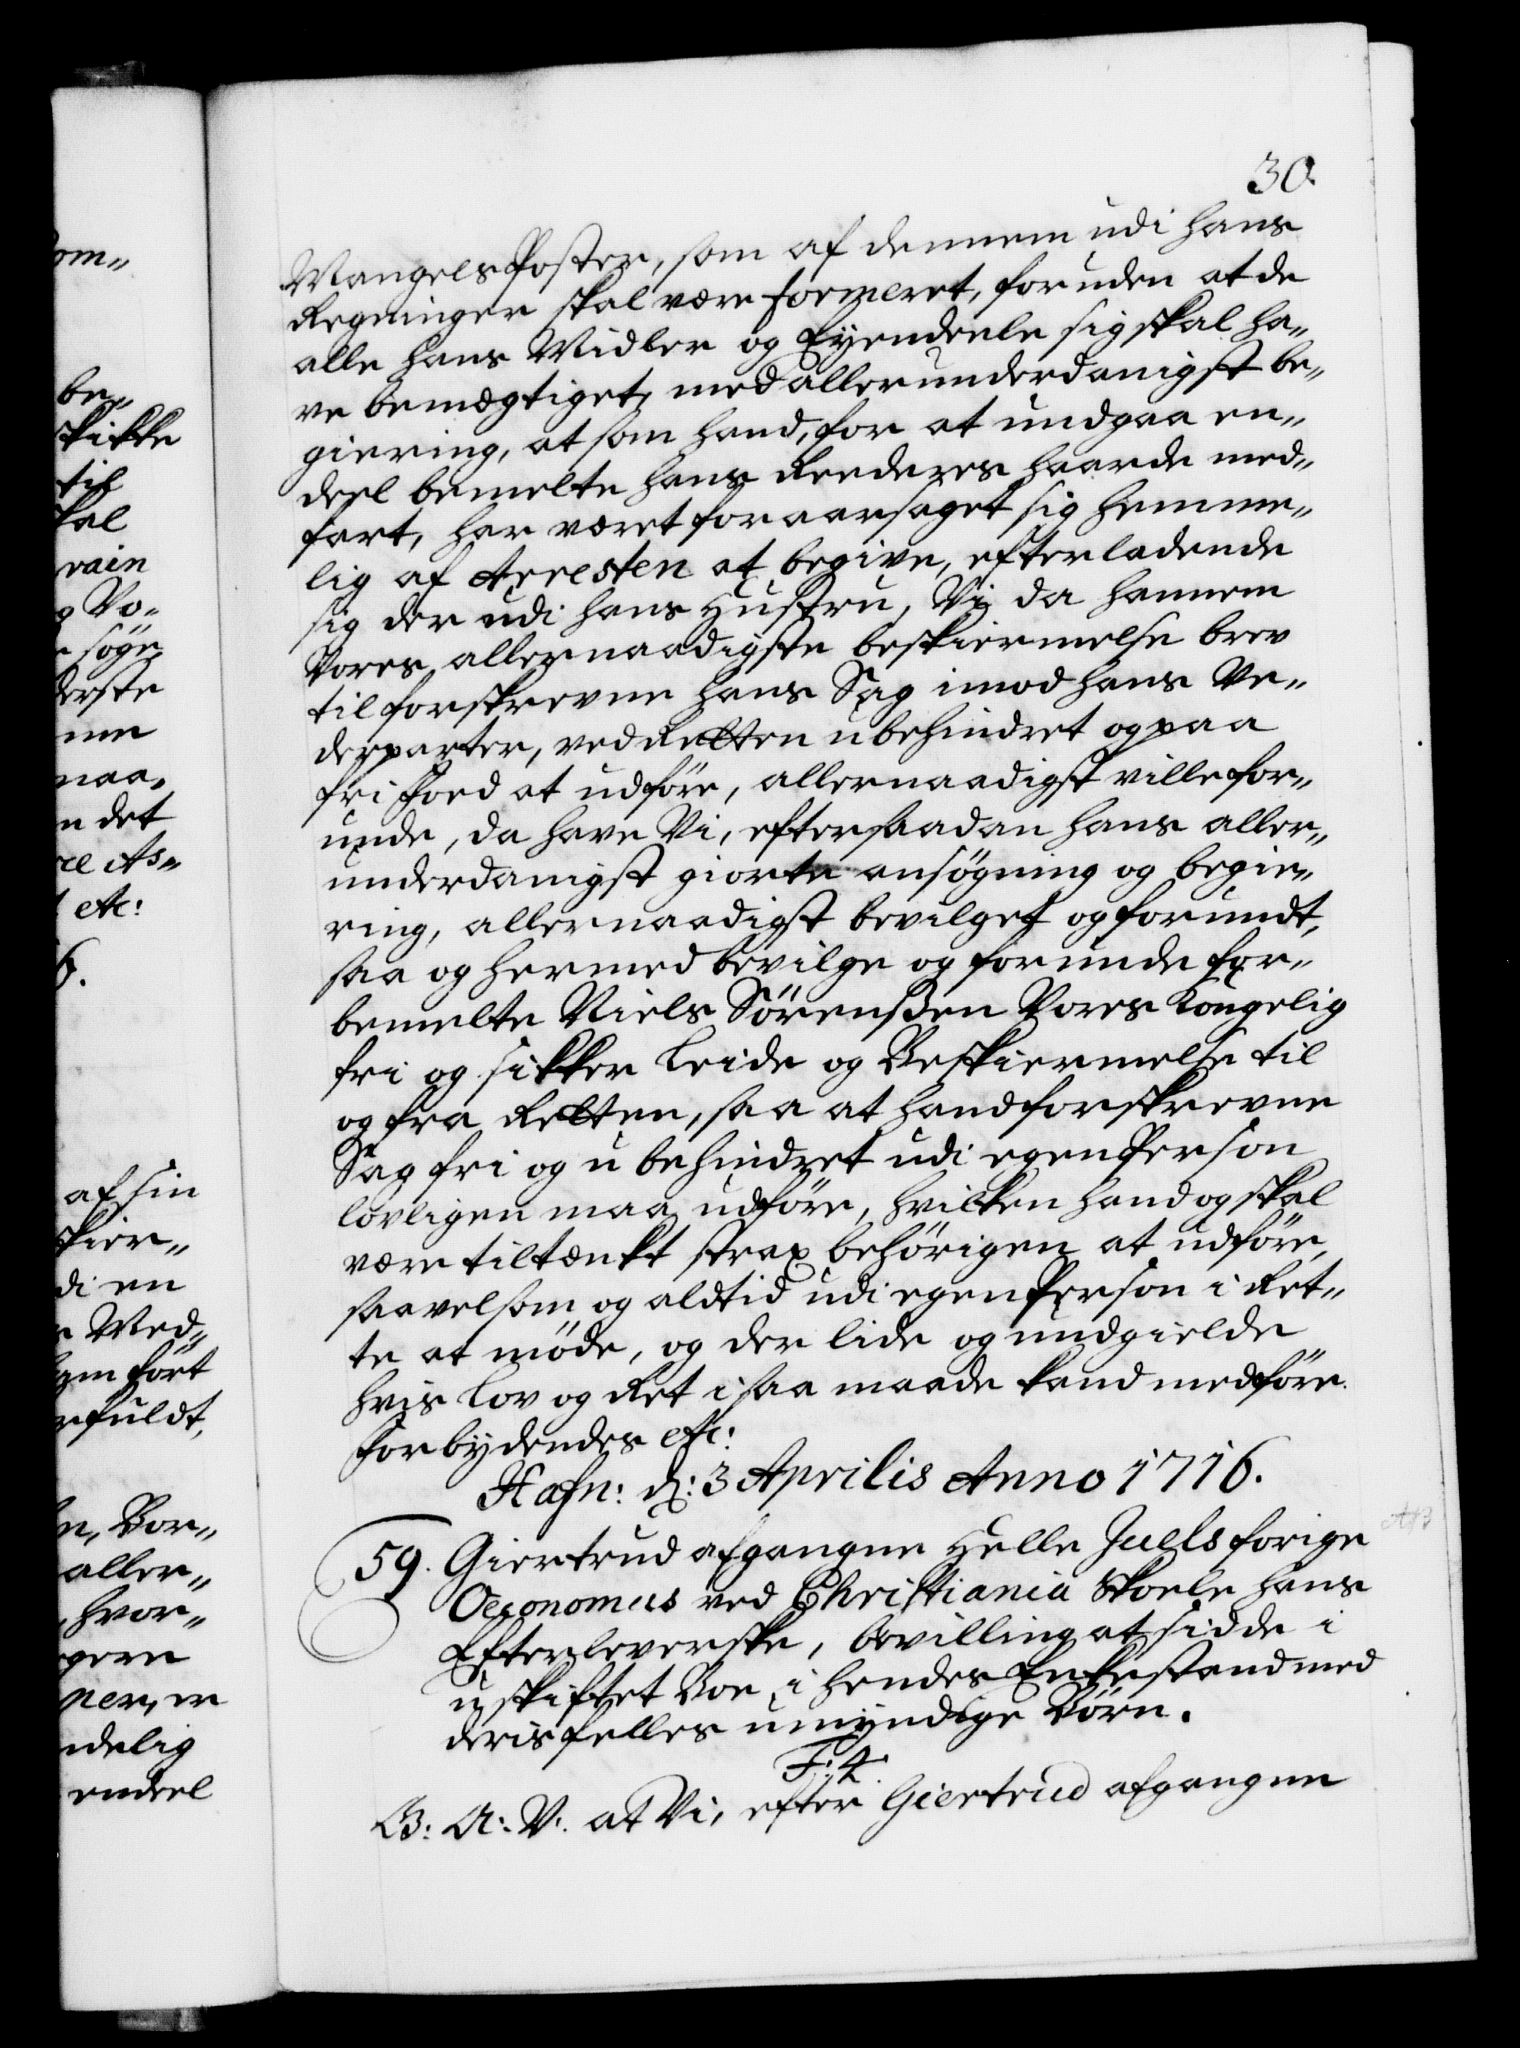 30.
Mangels Poster, som af dennem udi hans
Regninger skal være formeret, foruden at de
alle hans Midler og Eyendeele sig skal ha„
ve bemægtiget, med allerunderdanigst be„
giering, at som hand, for at undgaa en„
deel bemelte hans Reederes haarde med„
fart, har været foraarsaget sig hemme„
lig af Arresten at begive, efterladende
sig der udi hans Hustru, Vi da hannem
Vores allernaadigste beskiermelse brev
til forskrevne hans Sag imod hans Ve„
derparter, ved Retten ubehindret og paa
fri Foed at udföre, allernaadigst ville for„
unde, da have Vi, efter saadan hans aller„
underdanigst giorte ansögning og begie„
ring, allernaadigst bevilget og forundt,
saa og hermed bevilge og forunde for„
bemelte Niels Sörenßen Vores Kongelig
fri og sikker Leide og Beskiermelse til
og fra Retten, saa at hand forskrevne
Sag fri og ubehindret udi egen Person
lovligen maa udföre, hvilken hand og skal
være tiltænkt strax behörigen at udföre,
saavelsom og aldtid udi egen Person i Ret„
te at möde, og der lide og undgielde
hvis Lov og Ret i saa maade kand medföre.
Forbydendes etc:
Hafn: d: 3 Aprilis Anno 1716.
59. Giertrud afgangne Helle Juels forige
Oeconomus ved Christiania Skoele hans
Efterleverske, bevilling at sidde i
uskiftet Boe i hendes Enkestand med
deris felles umyndige Börn.
F: 4.
G: A: V: at Vi, efter Giertrud afgangne
om„
be„
skikke
til
skal
rain
g Vo„
söge
derste
nne
naa„
n det
re As„
etc:
6.
af sin
skier„
di en
Med„
em fört
rfuldt,
n, Bor„
aller„
hvor„
gere
ner, er
ndelig
endeel